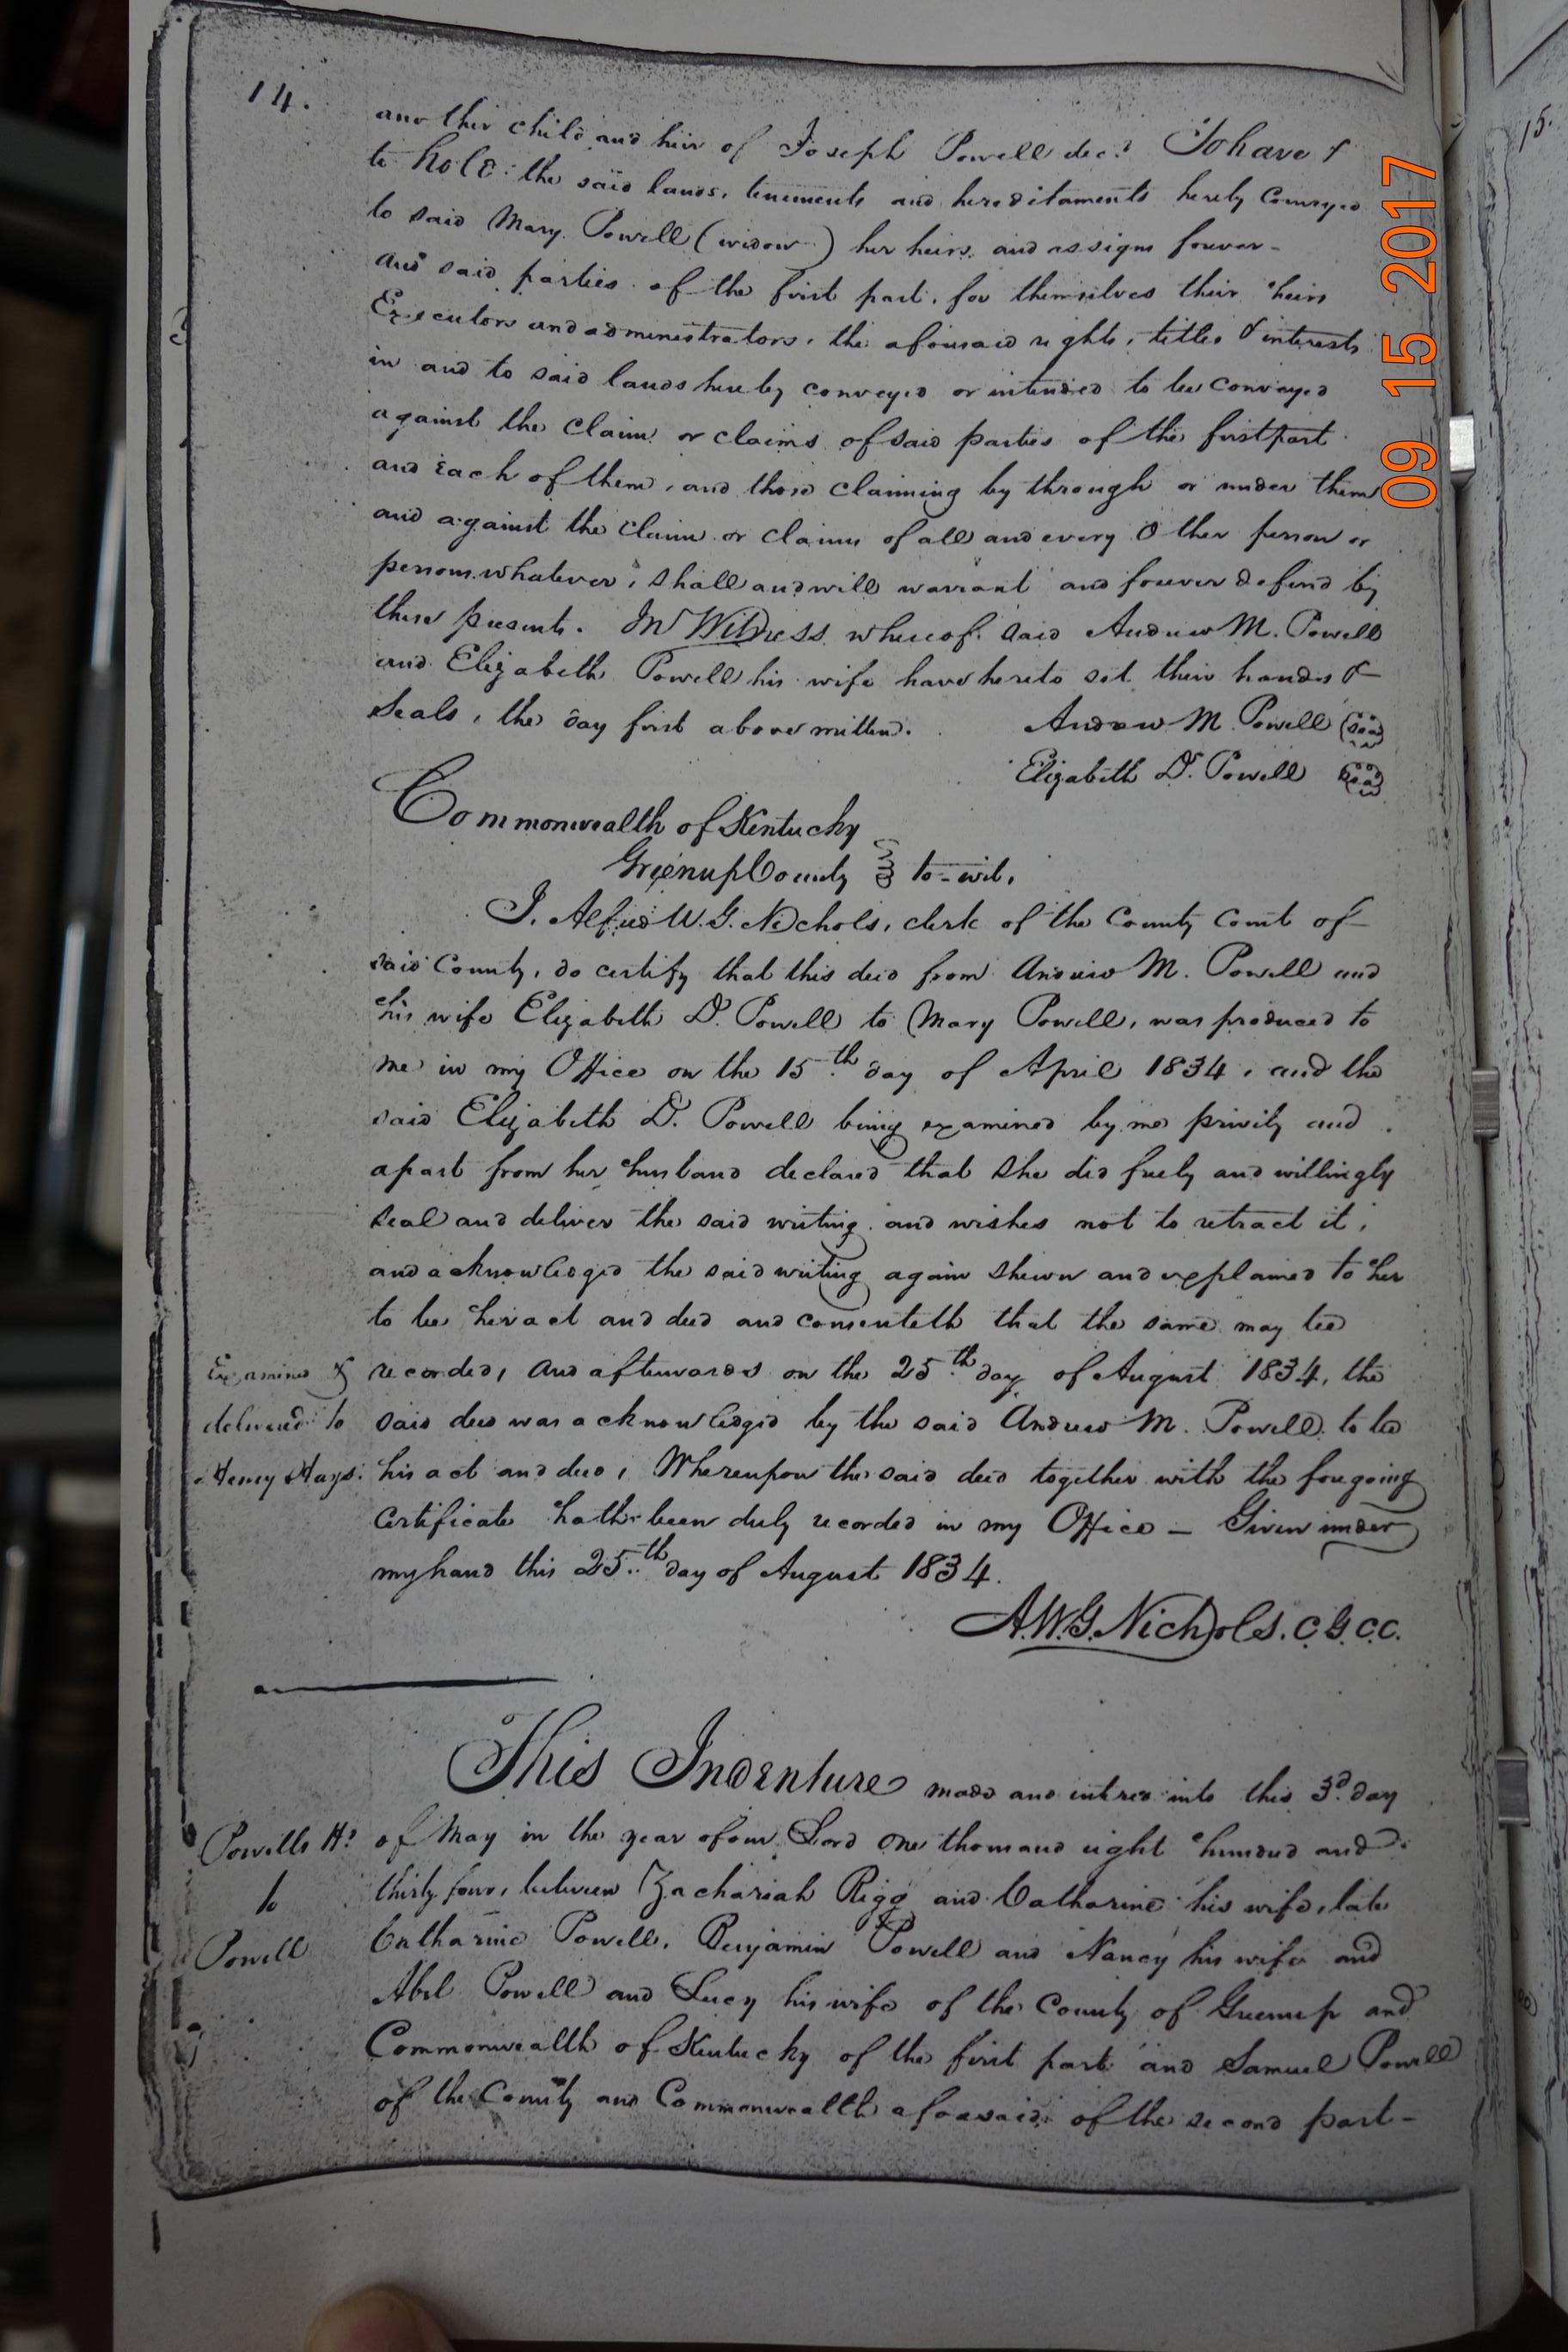 14.
another child and heir of Joseph Powell decd. To have &
to hold: the said lands, tenements and hereditaments hereby conveyed
to said Mary Powell (widow) her heirs and assigns forever -
and said parties of the first part, for themselves their heirs
Executors and administrators, the aforesaid rights, titles & interests
in and to said lands hereby conveyed or intended to be conveyed
against the claim or claims of said parties of the first part
and each of them, and those claiming by through or under them
and against the claim or claims of all and every other person or
persons whatever, shall and will warrant and forever defend by
these presents. In Witness whereof said Andrew M. Powell
and Elizabeth Powell his wife have hereto set their hands &
Seals, the day first above written. Andrew M. Powell (seal)
Elizabeth D. Powell (seal)
Commonwealth of Kentucky
Greenup County to-wit,
I, Alfred W. G. Nichols, clerk of the County Court of
said County, do certify that this deed from Andrew M. Powell and
his wife Elizabeth D. Powell to Mary Powell, was produced to
me in my Office on the 15th day of April 1834, and the
said Elizabeth D. Powell being examined by me privily and
apart from her husband declared that she did freely and willingly
seal and deliver the said writing and wishes not to retract it,
and acknowledged the said writing again shewn and explained to her
to be her act and deed and consenteth that the same may be
Examined & recorded, and afterwards on the 25th day of August 1834, the
delivered to said deed was acknowledged by the said Andrew M. Powell to be
Henry Hays. his act and deed, Whereupon the said deed together with the foregoing
Certificate hath been duly recorded in my Office - Given under
my hand this 25th day of August 1834.
A.W.G. Nichols. C.G.C.C.
This Indenture made and entred into this 3d day
Powells Hs. of May in the year of our Lord one thousand eight hundred and
to thirty four, between Zachariah Rigg and Catharine his wife, late
Powell Catharine Powell, Benjamin Powell and Nancy his wife and
Abel Powell and Lucy his wife of the County of Greenup and
Commonwealth of Kentucky of the first part and Samuel Powell
of the County and Commonwealth aforesaid of the second part -
15.
09 15 2017